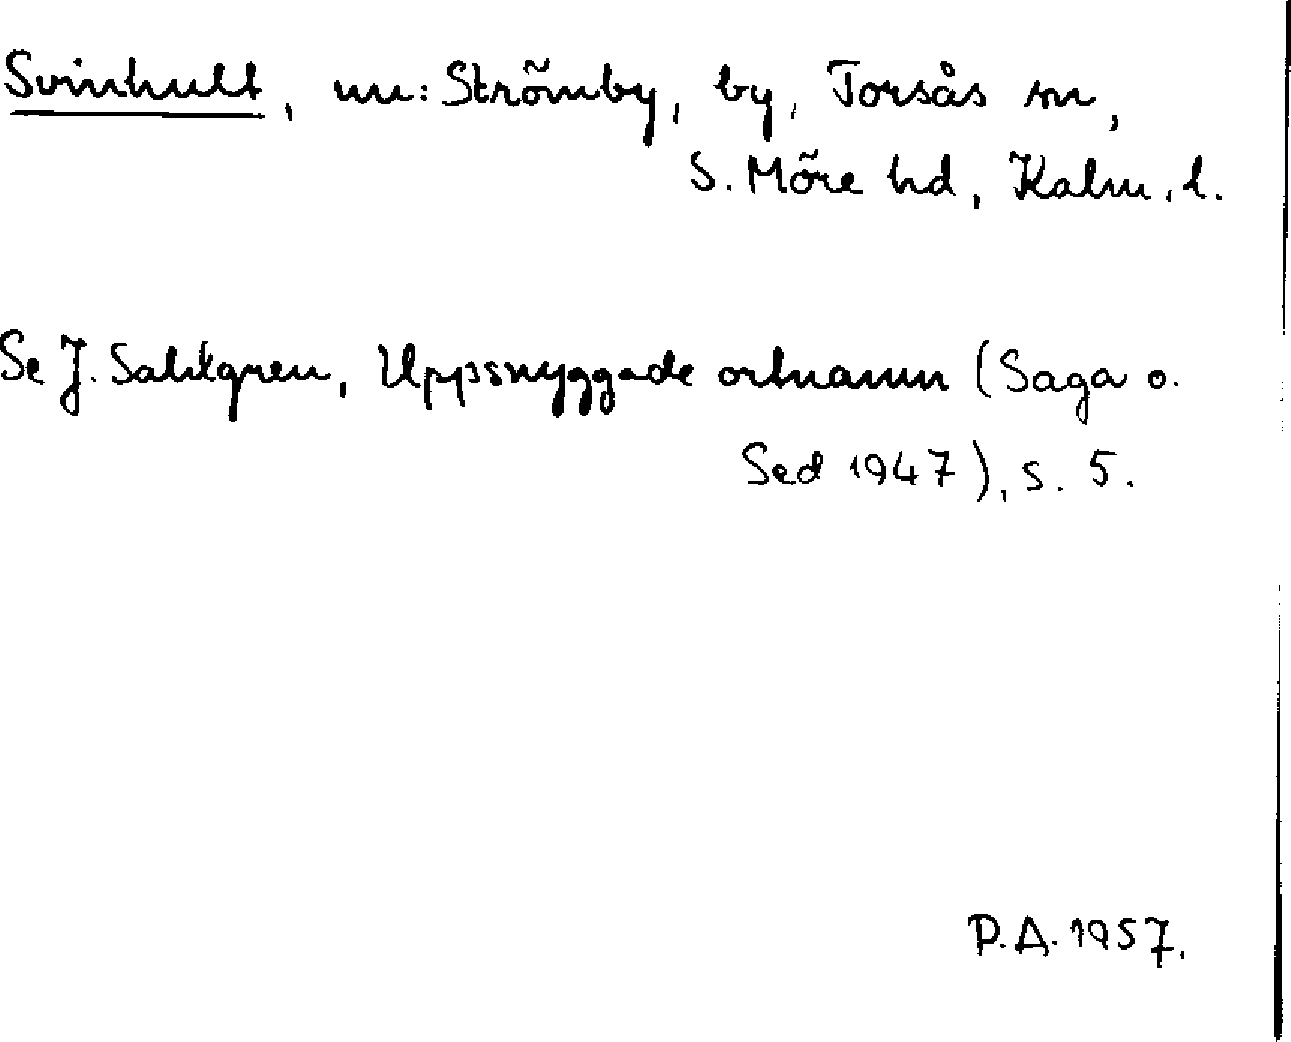 Svinhult, nu: Strömby, by, Torsås sn,
S. Möre hd, Kalm. l.
Se J. Sahlgren, Uppsnyggade ortnamn (Saga o.
Sed 1947), s. 5.
P.A. 1957.